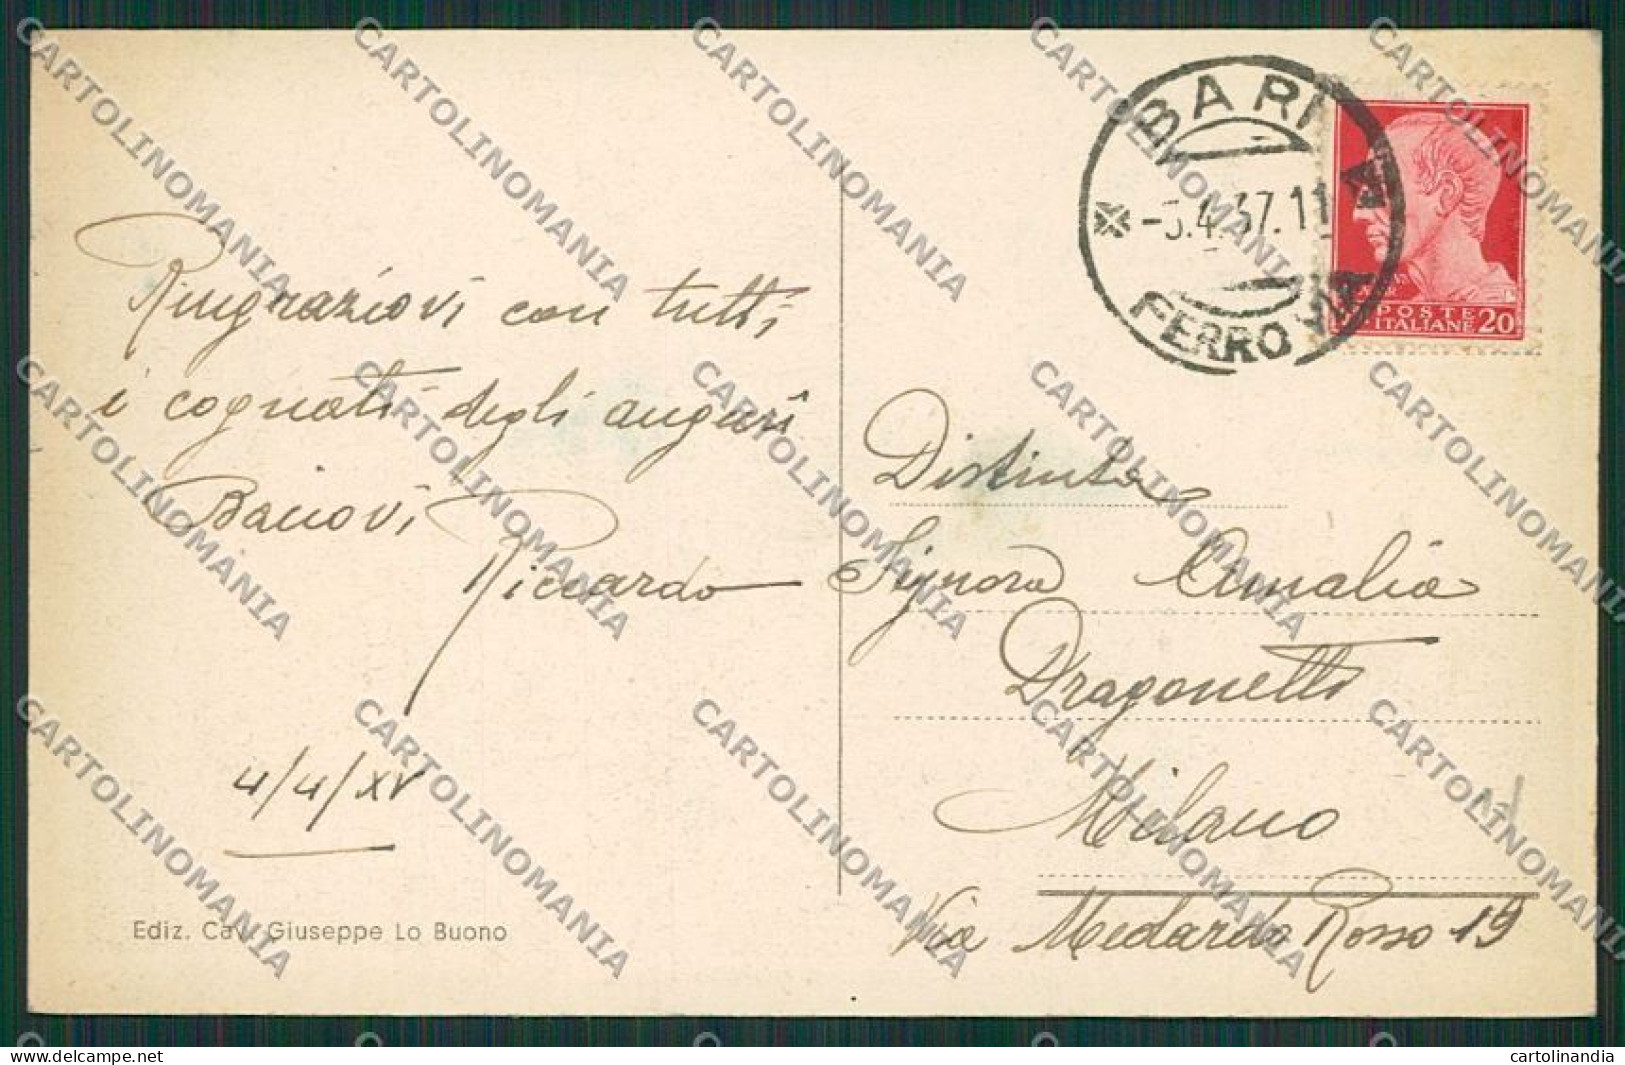 BARI
-5.4.37.11
FERROVIA
POSTE
ITALIANE 20
Ringraziovi con tutti
i cognati degli auguri
Baciovi
Riccardo
4/4/XV
Ediz. Cav. Giuseppe Lo Buono
Distinta
Signora Amalia
Dragonetti
Milano
Via Medardo Rosso 19
CARTOLINOMANIA
cartolinandia
delcampe.net